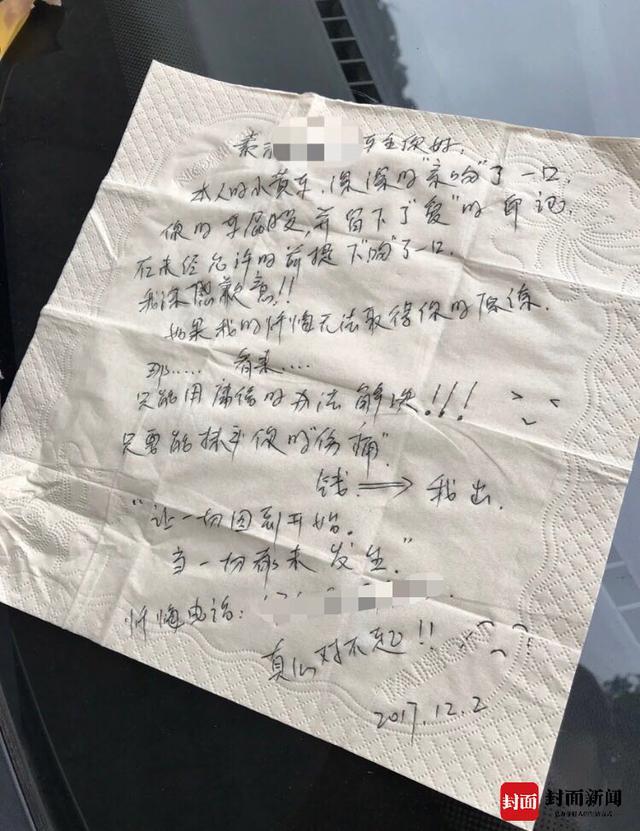 车主你好,
本人的小黄车,深深的"亲吻"了一口
你的车屁股,并留下了"爱"的印记.
在未经允许的前提下"吻"了一口.
我深感歉意!!
如果我的忏悔无法取得你的原谅.
那..... 看来....
只能用庸俗的办法解决!!!
只要能抹平你的"伤痛"
钱 ⟹ 我出.
"让一切回到开始.
当一切都未发生."
忏悔电话:
真心对不起!!
2017.12.2
封面 封面新闻